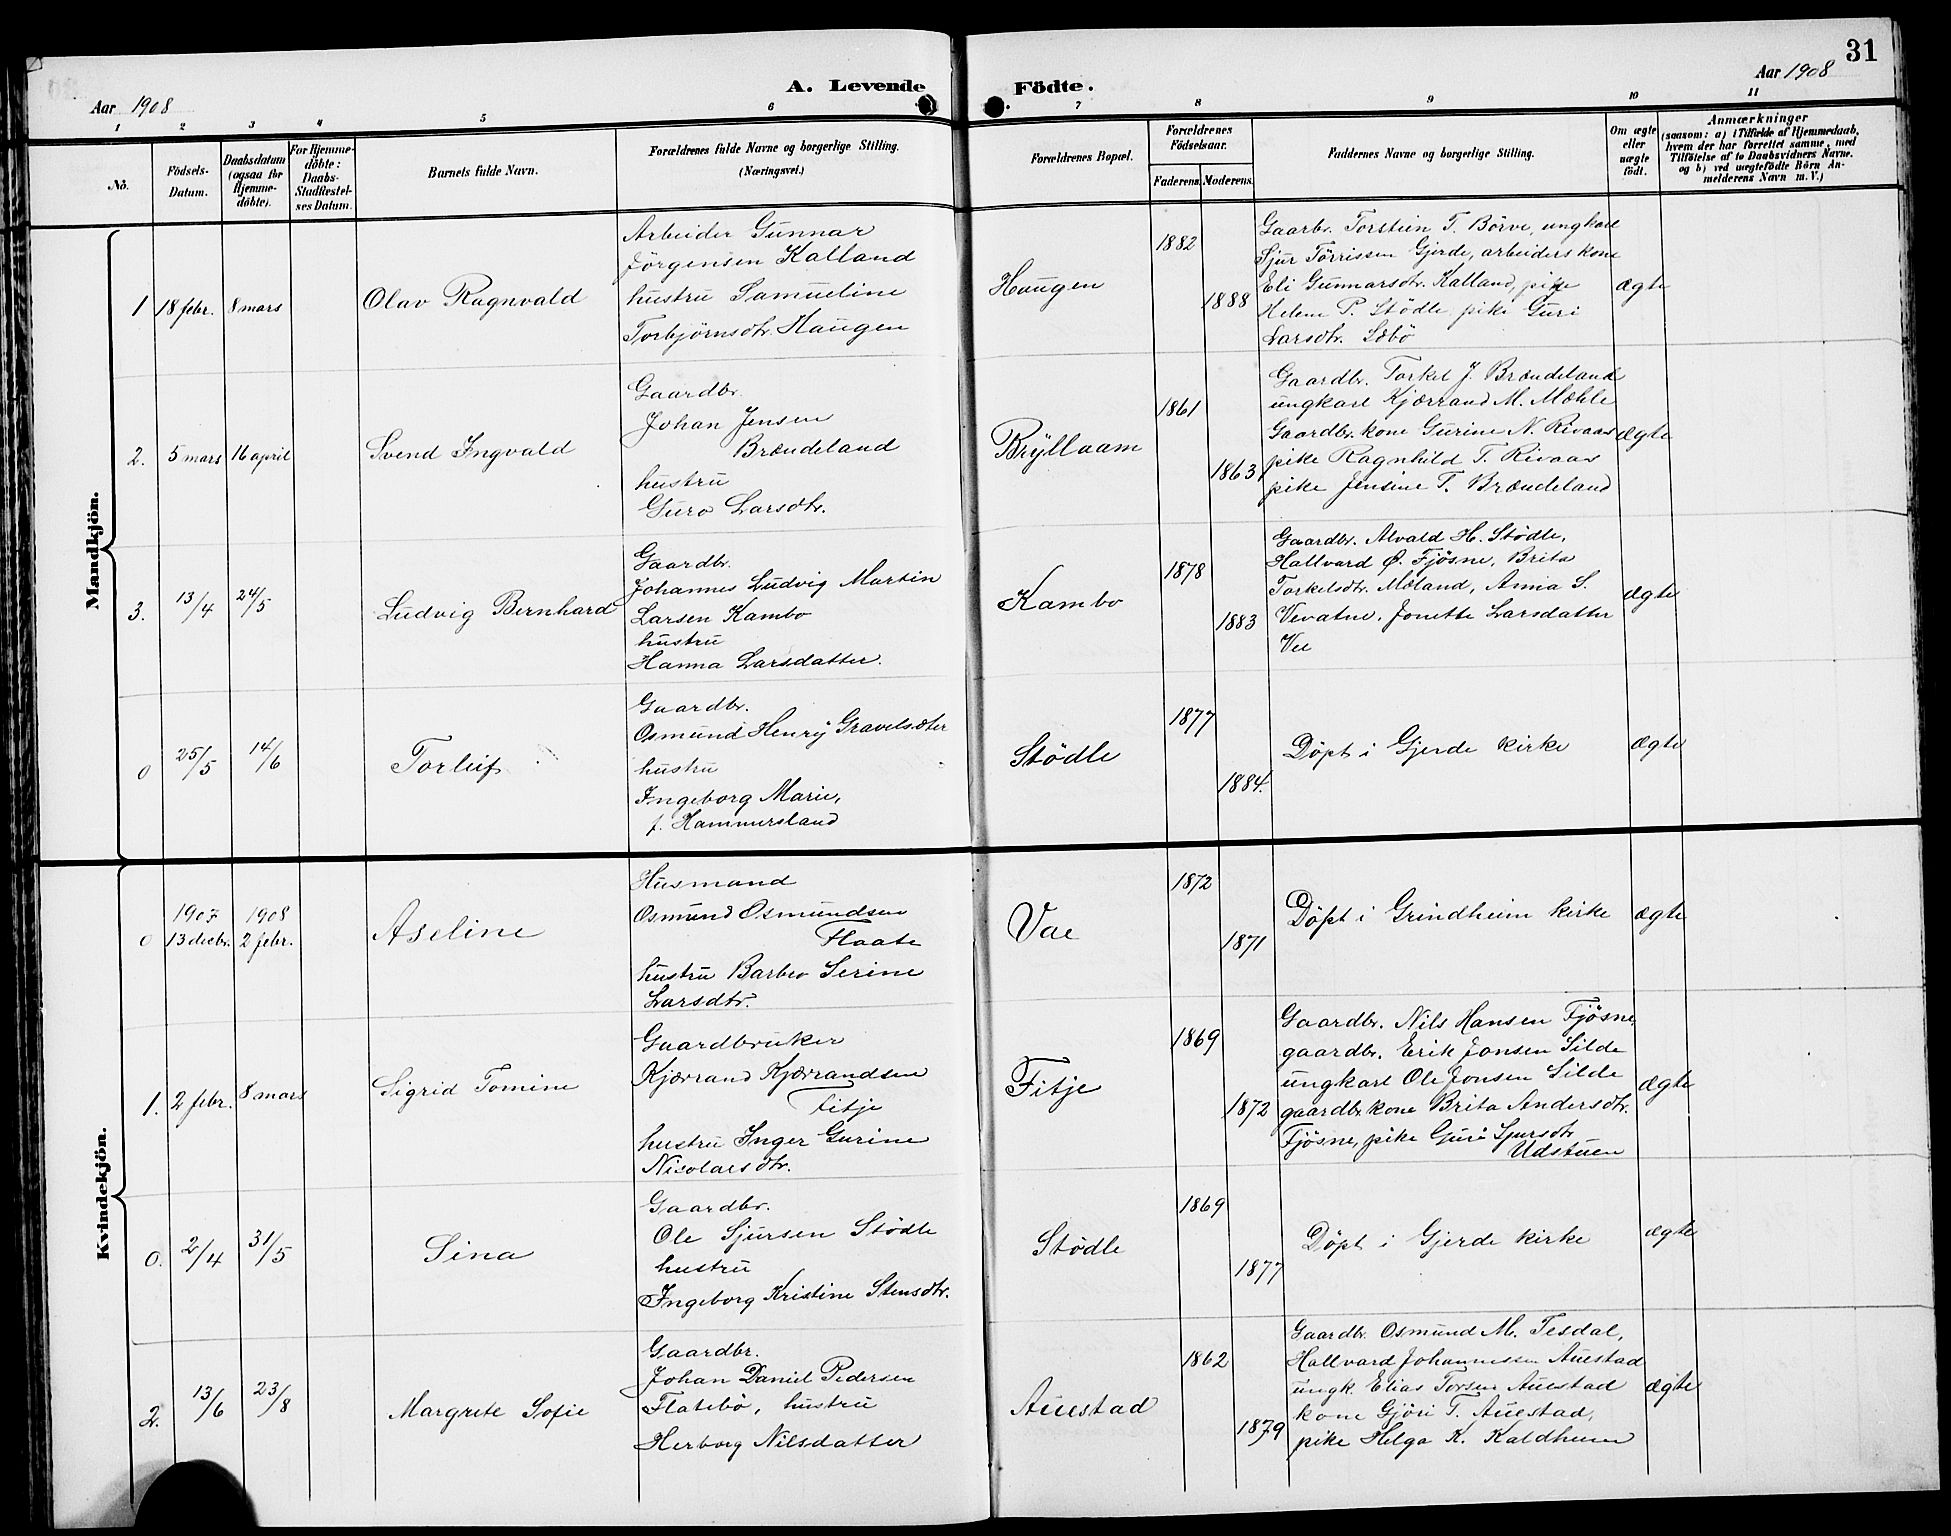 31
Aar 1908
A. Levende Födte.
Aar 1908
1 2 3 4 5 6 7 8 9 10 11
No.
Födsels-
Datum.
Daabsdatum
(ogsaa for
Hjemme-
döbte).
For Hjemme-
döbte:
Daabs-
Stadfestel-
ses Datum.
Barnets fulde Navn.
Forældrenes fulde Navne og borgerlige Stilling.
(Næringsvei.)
Forældrenes Bopæl.
Forældrenes
Födselsaar.
Faderens. Moderens.
Faddernes Navne og borgerlige Stilling.
Om ægte
eller
uægte
födt.
Anmærkninger
(saasom: a) i Tilfælde af Hjemmedaab,
hvem der har forrettet samme, med
Tilföielse af to Daabsvidners Navne.
og b) ved uægtefödte Börn An-
melderens Navn m. V.)
Mandkjön.
1 18 febr. 8 mars
Olav Ragnvald
Arbeider Gunnar
Jörgensen Kalland
hustru Samueline
Torbjörnsdtr. Haugen
Haugen
1882
1888
Gaarbr. Torstein T. Börve, ungkarl
Sjur Törrissen Gjerde, arbeiders kone
Eli Gunnarsdtr. Kalland, pike
Helene P. Stödle, pike Guri
Larsdtr. Sæbö
ægte
2. 5 mars 16 april
Svend Ingvald
Gaardbr.
Johan Jensen
Brændeland
hustru
Guro Larsdtr.
Bryllaam
1861
1863
Gaardbr. Torkel J. Brændeland
ungkarl Kjærrand M. Mæhle
Gaardbr. kone Gurine N. Rivaas
pike Ragnhild T. Rivaas
pike Jensine T. Brændeland
ægte
3. 13/4 24/5
Ludvig Bernhard
Gaardbr.
Johannes Ludvig Martin
Larsen Kambo
hustru
Hanna Larsdatter.
Kambo
1878
1883
Gaardbr. Alvald H. Stödle,
Hallvard Ø. Fjösne, Brita
Torkelsdtr. Mæland, Anna S.
Vevatne. Jonette Larsdatter
Vee
ægte
0 25/5 14/6
Torleif
Gaardbr.
Osmund Henry Gravelsæter
hustru
Ingeborg Marie,
f. Hammersland
Stödle
1877
1884.
Döpt i Gjerde kirke
ægte
Kvindekjön.
0 1907 13 decbr. 1908 2 febr.
Aseline
Husmand
Osmund Osmundsen
Flaate
hustru Barbro Serine
Larsdtr.
Vae
1872
1871
Döpt i Grindheim kirke
ægte
1. 2 febr. 8 mars
Sigrid Tomine
Gaardbruker
Kjærrand Kjærrandsen
Fitje
hustru Inger Gurine
Nicolaisdtr.
Fitje
1869
1872
Gaardbr. Nils Hansen Fjösne,
gaardbr. Erik Jonsen Silde
ungkarl Ole Jonsen Silde
gaardbr. kone Brita Andersdtr.
Fjösne, pike Guri Sjursdtr.
Udstuen
ægte
0. 2/4 31/5
Sina
Gaardbr.
Ole Sjursen Stödle
hustru
Ingeborg Kristine Stensdtr.
Stödle
1869
1877
Döpt i Gjerde kirke
ægte
2. 13/6 23/8
Margrete Sofie
Gaardbr.
Johan Daniel Pedersen
Flatebö, hustru
Herborg Nilsdatter
Auestad
1862
1879
Gaardbr. Osmund M. Tesdal,
Hallvard Johannessen Auestad
ungk. Elias Torsen Auestad
kone Gjöri T. Auestad,
pike Helga K. Kaldheim
ægte